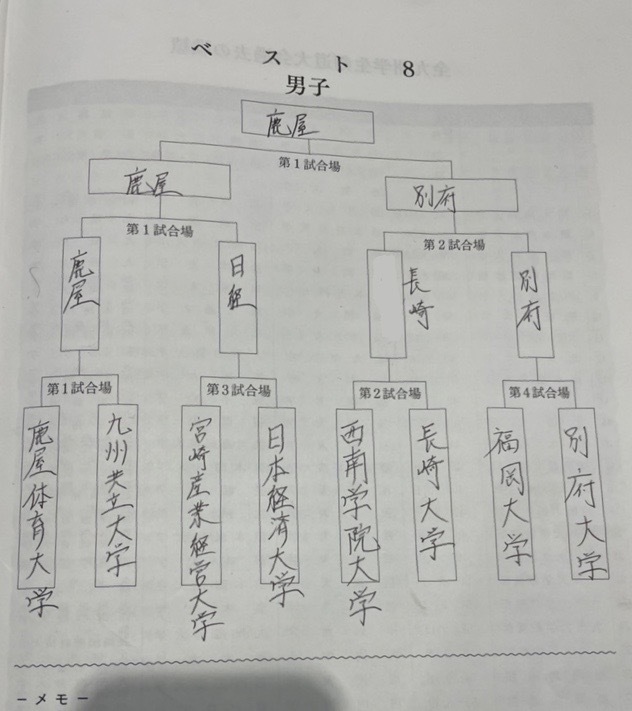 ベスト8
男子
鹿屋
第1試合場
鹿屋
別府
第1試合場
第2試合場
鹿屋
日経
長崎
別府
第1試合場
第3試合場
第2試合場
第4試合場
鹿屋体育大学
九州共立大学
宮崎産業経営大学
日本経済大学
西南学院大学
長崎大学
福岡大学
別府大学
－メモ－